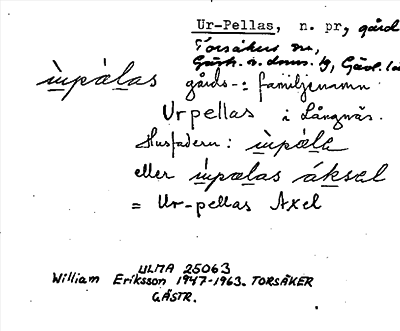 Ur-Pellas, n. pr., gård
Torsåkers sn,
Gästr. ö. doms. lg, Gävl. l
ùpàlas gårds- o. familjenamn
Urpellas i Långnäs.
Husfadern: ùpàla
eller ùpalas áksal
= Ur-pellas Axel
ULMA 25063
William Eriksson 1947-1963. TORSÅKER
GÄSTR.